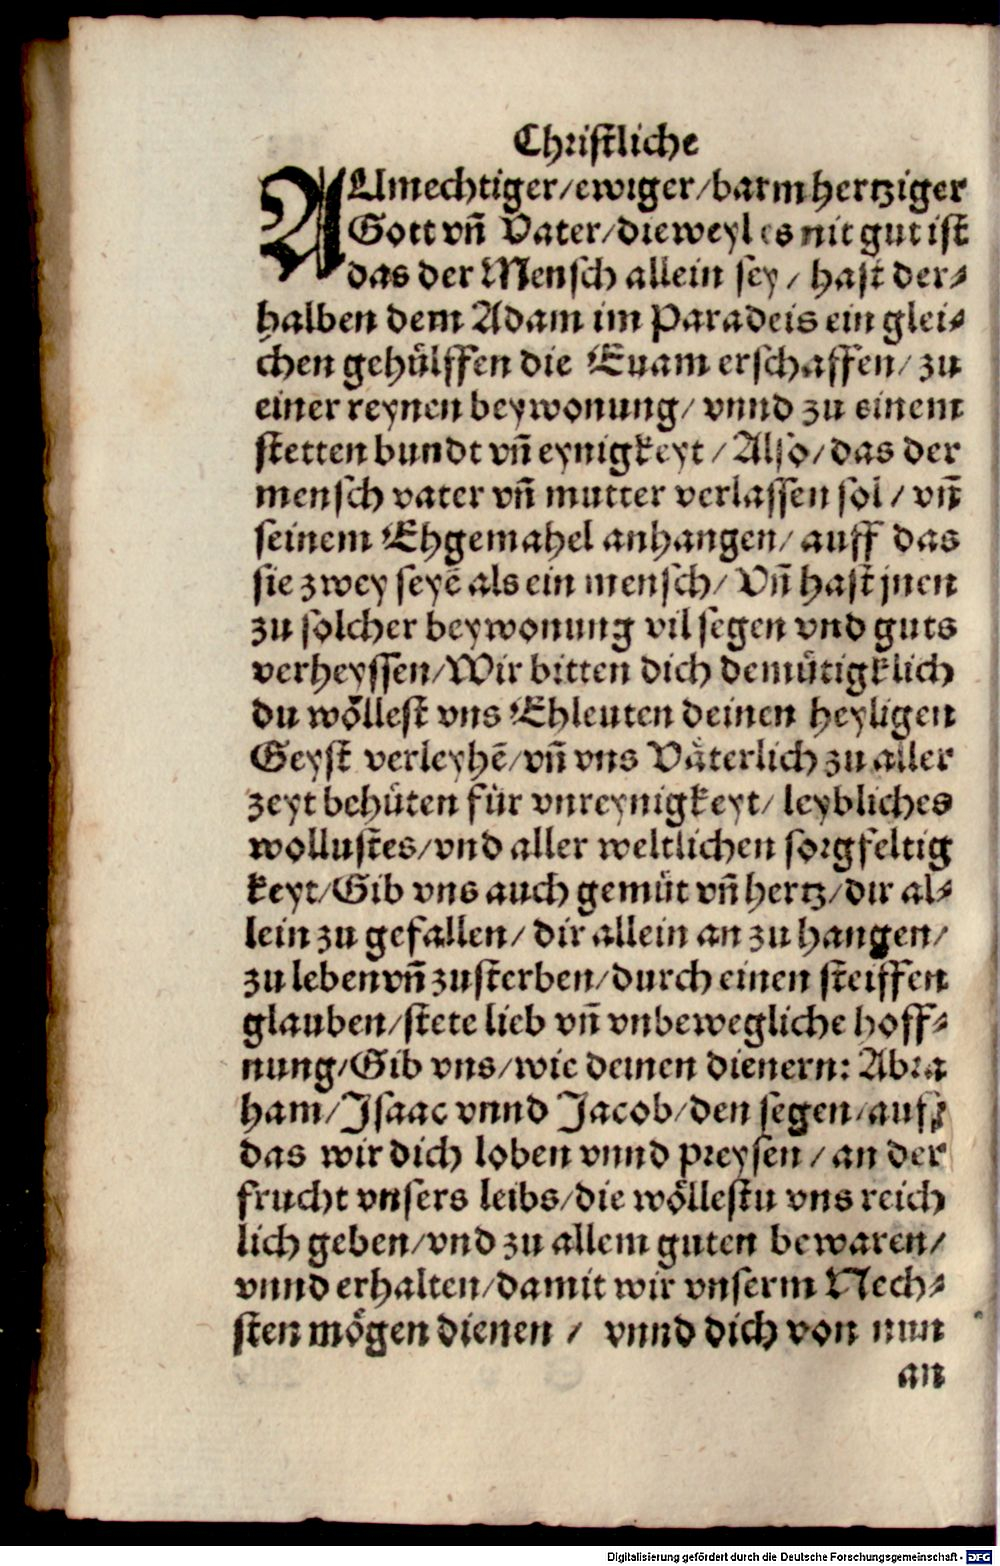 Christliche
ALlmechtiger/ewiger/barmhertziger
Gott vn̄ Vater/dieweyl es nit gut ist
das der Mensch allein sey/ hast der⸗
halben dem Adam im Paradeis ein glei⸗
chen gehülffen die Euam erschaffen/ zu
einer reynen beywonung/ vnnd zu einem
stetten bundt vn̄ eynigkeyt/ Also/ das der
mensch vater vn̄ mutter verlassen sol/ vn̄
seinem Ehgemahel anhangen/ auff das
sie zwey seyē als ein mensch/ Vn̄ hast jnen
zu solcher beywonung vil segen vnd guts
verheyssen/Wir bitten dich demütigklich
du wöllest vns Ehleuten deinen heyligen
Geyst verleyhē/vn̄ vns Väterlich zu aller
zeyt behüten für vnreynigkeyt/ leybliches
wollustes/vnd aller weltlichen sorgfeltig
keyt/Gib vns auch gemüt vn̄ hertz/dir al⸗
lein zu gefallen/ dir allein an zu hangen/
zu leben vn̄ zusterben/durch einen steiffen
glauben/stete lieb vn̄ vnbewegliche hoff⸗
nung/Gib vns/wie deinen dienern: Abra
ham/Isaac vnnd Jacob/den segen/auff
das wir dich loben vnnd preysen/ an der
frucht vnsers leibs/die wöllestu vns reich
lich geben/vnd zu allem guten bewaren/
vnnd erhalten/damit wir vnserm Nech⸗
sten mögen dienen/ vnnd dich von nun
an
Digitalisierung gefördert durch die Deutsche Forschungsgemeinschaft - DFG